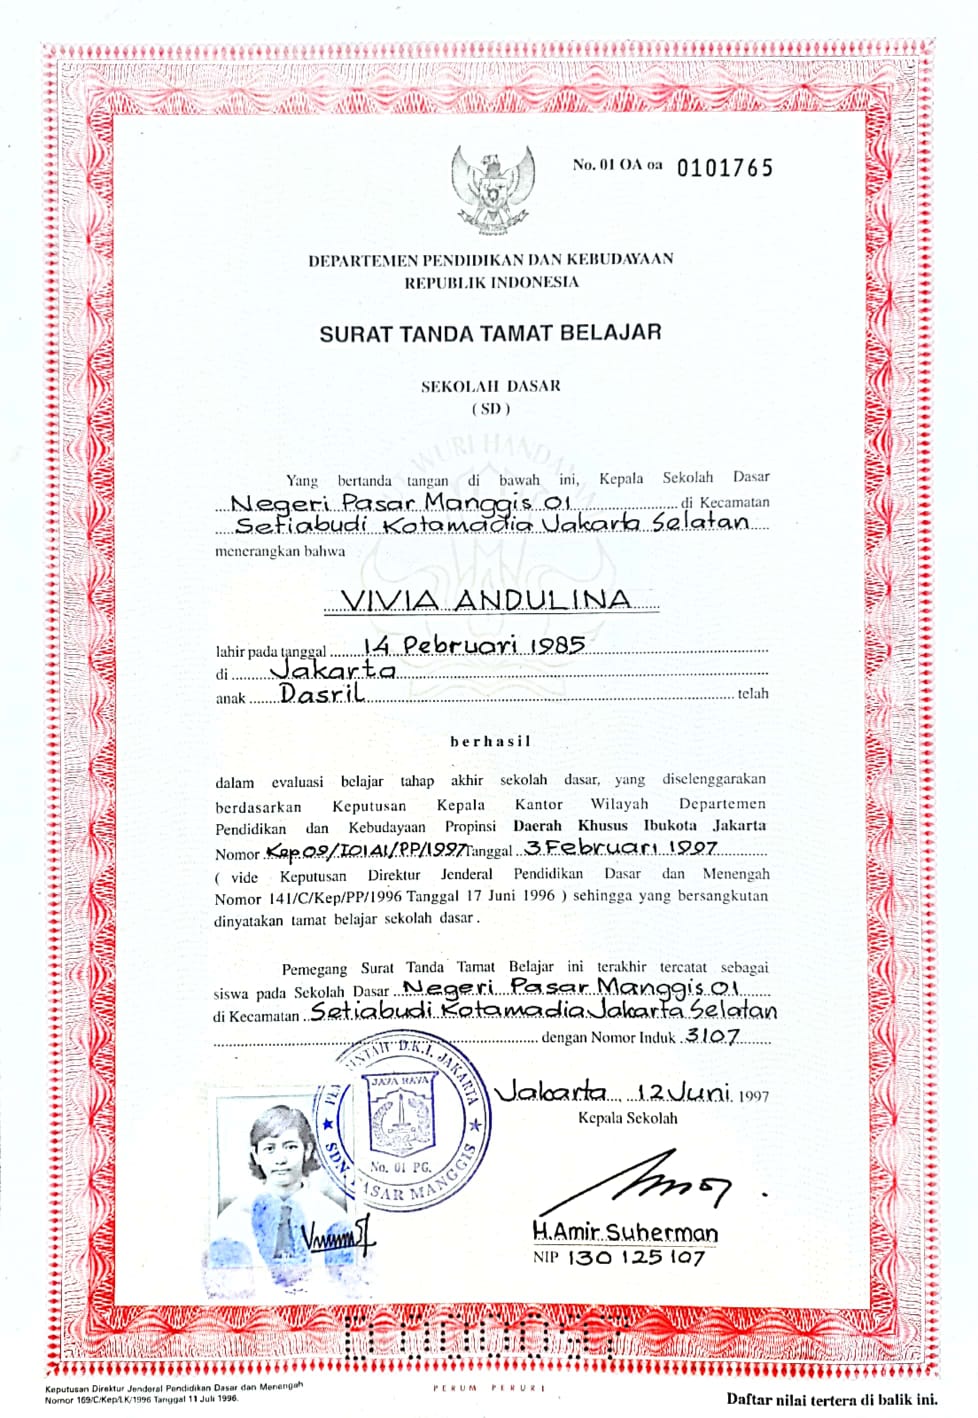 No. 01 OA oa 0101765
DEPARTEMEN PENDIDIKAN DAN KEBUDAYAAN
REPUBLIK INDONESIA
SURAT TANDA TAMAT BELAJAR
SEKOLAH DASAR
( SD )
Yang bertanda tangan di bawah ini, Kepala Sekolah Dasar
Negeri Pasar Manggis 01 di Kecamatan
Setiabudi Kotamadia Jakarta Selatan
menerangkan bahwa
VIVIA ANDULINA
lahir pada tanggal 14 Pebruari 1985
di Jakarta
anak Dasril telah
berhasil
dalam evaluasi belajar tahap akhir sekolah dasar, yang diselenggarakan
berdasarkan Keputusan Kepala Kantor Wilayah Departemen
Pendidikan dan Kebudayaan Propinsi Daerah Khusus Ibukota Jakarta
Nomor Kep.09/I01A1/PP/1997 Tanggal 3 Februari 1997
( vide Keputusan Direktur Jenderal Pendidikan Dasar dan Menengah
Nomor 141/C/Kep/PP/1996 Tanggal 17 Juni 1996 ) sehingga yang bersangkutan
dinyatakan tamat belajar sekolah dasar.
Pemegang Surat Tanda Tamat Belajar ini terakhir tercatat sebagai
siswa pada Sekolah Dasar Negeri Pasar Manggis 01
di Kecamatan Setiabudi Kotamadia Jakarta Selatan
dengan Nomor Induk 3107
Jakarta, 12 Juni 1997
Kepala Sekolah
D.K.I. JAKARTA
JAYA RAYA
No. 01 PG.
SDN. PASAR MANGGIS
H. Amir Suherman
NIP 130 125 107
Keputusan Direktur Jenderal Pendidikan Dasar dan Menengah
Nomor 169/C/Kep/LK/1996 Tanggal 11 Juli 1996.
PERUM PERURI
Daftar nilai tertera di balik ini.